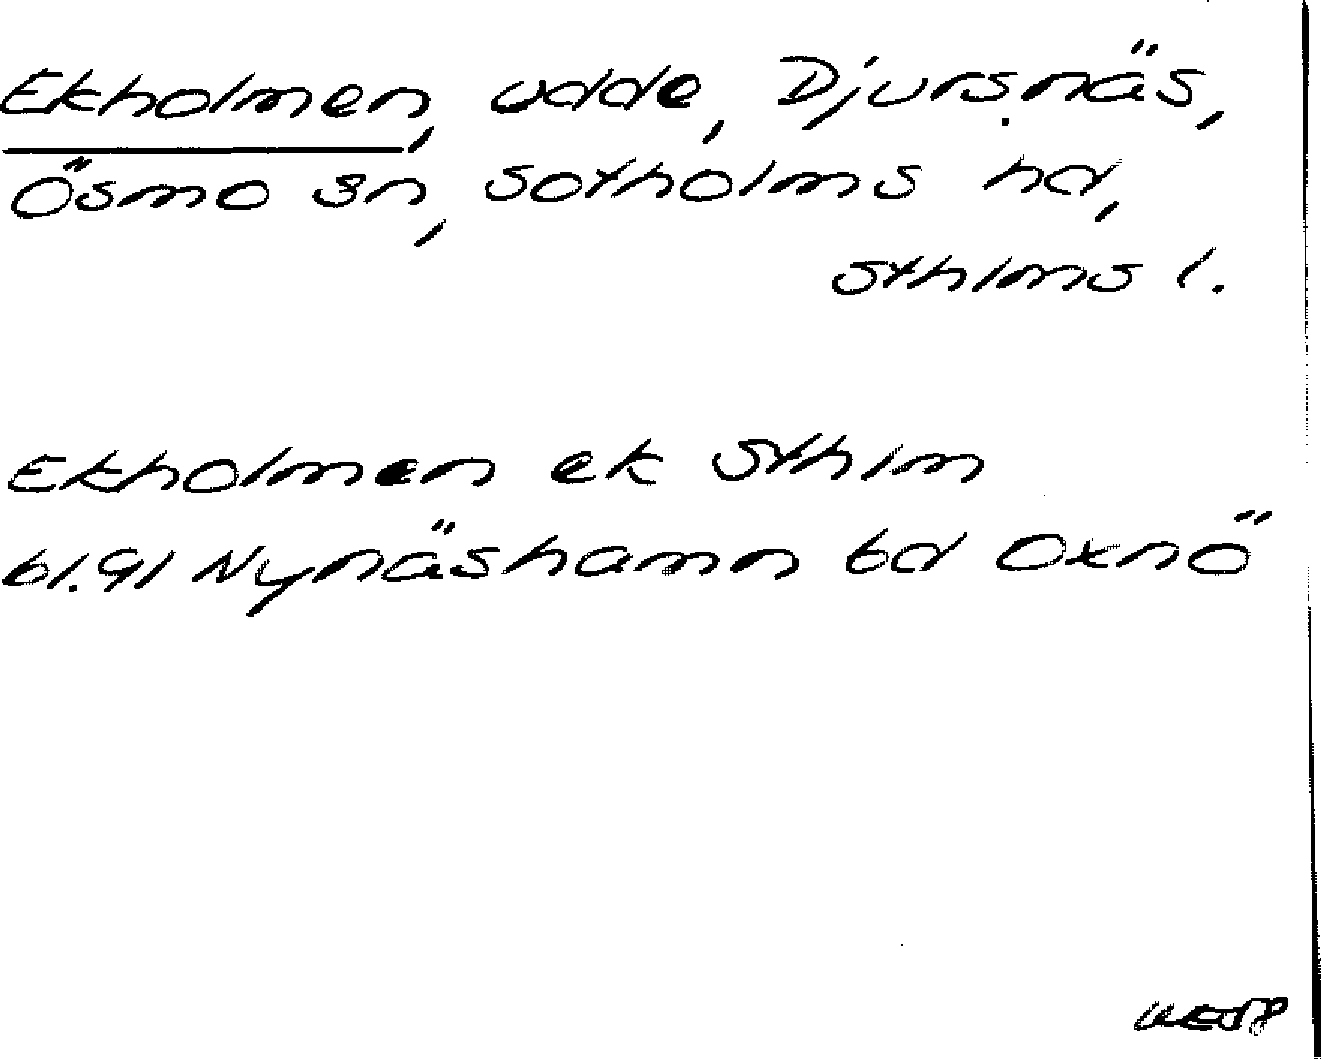 Ekholmen, udde, Djursnäs,
Ösmo sn, Sotholms hd,
Sthlms l.
Ekholmen ek Sthlm
61.91 Nynäshamn bd Oxnö